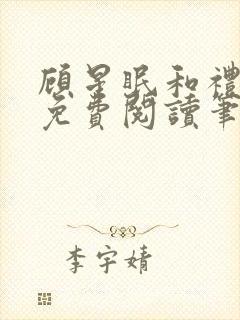 顾星眠和禮
免費閱讀筆
李宇婧